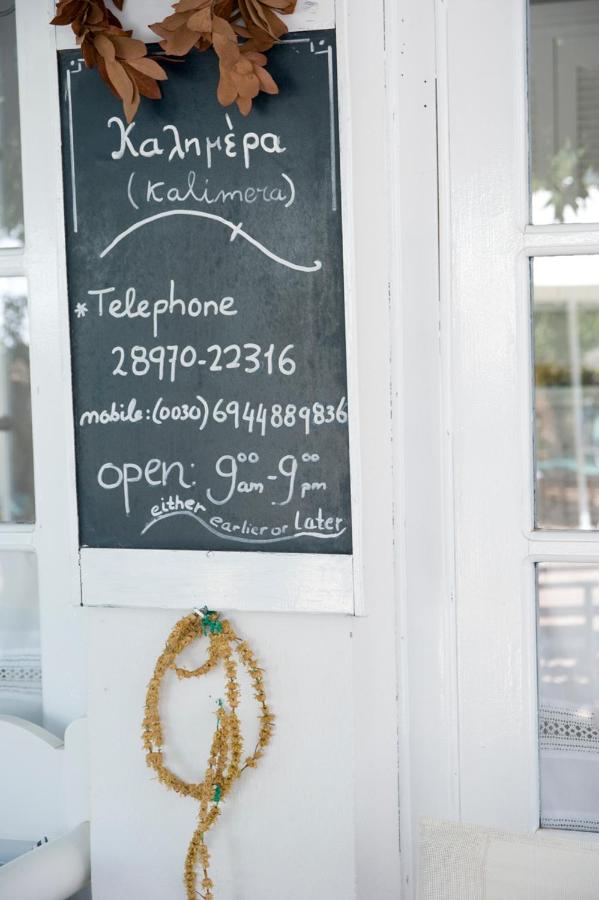 Καλημὲρα
(Kalimera)
*Telephone
28970-22316
mobile:(0030)6944889836
open: 9ºº am - 9ºº pm
either earlier or Later